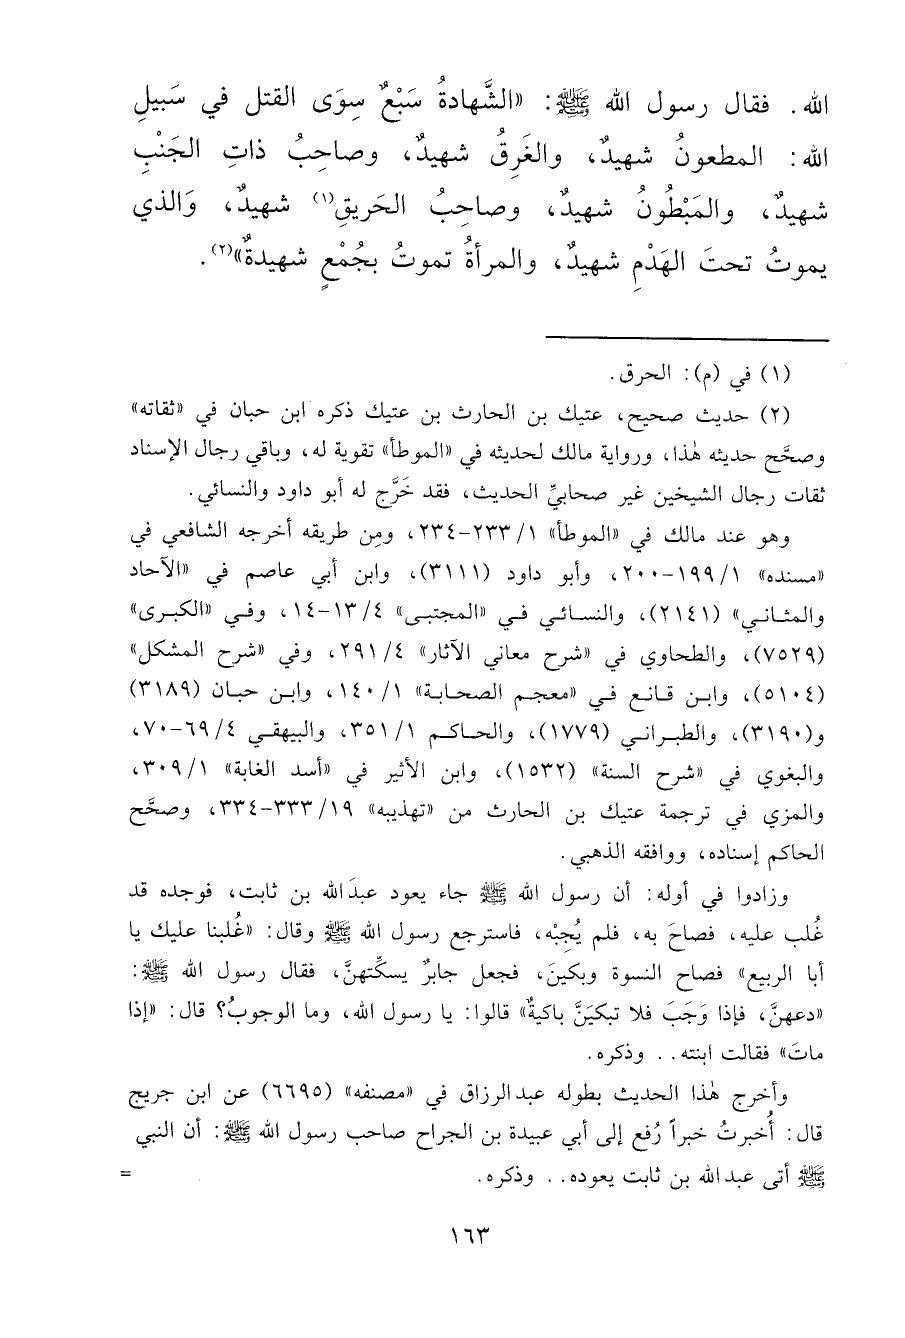 الله. فقال رسول الله ﷺ: «الشَّهادةُ سَبْعٌ سِوَى القتل في سَبيلِ
الله: المطعونُ شهيدٌ، والغَرِقُ شهيدٌ، وصاحِبُ ذاتِ الجَنْبِ
شهيدٌ، والمَبْطُونُ شهيدٌ، وصاحِبُ الحَريقِ(١) شهيدٌ، وَالذي
يموتُ تحتَ الهَدْمِ شهيدٌ، والمرأةُ تموتُ بجُمْعٍ شهيدةٌ»(٢).
(١) في (م): الحرق.
(٢) حديث صحيح، عتيك بن الحارث بن عتيك ذكره ابن حبان في «ثقاته»
وصحَّح حديثه هٰذا، ورواية مالك لحديثه في «الموطأ» تقوية له، وباقي رجال الإسناد
ثقات رجال الشيخين غير صحابيِّ الحديث، فقد خَرَّج له أبو داود والنسائي.
وهو عند مالك في «الموطأ» ٢٣٣/١-٢٣٤، ومِن طريقه أخرجه الشافعي في
«مسنده» ١٩٩/١-٢٠٠، وأبو داود (٣١١١)، وابن أبي عاصم في «الآحاد
والمثاني» (٢١٤١)، والنسائي في «المجتبى» ١٣/٤-١٤، وفي «الكبرى»
(٧٥٢٩)، والطحاوي في «شرح معاني الآثار» ٢٩١/٤، وفي «شرح المشكل»
(٥١٠٤)، وابن قانع في «معجم الصحابة» ١٤٠/١، وابن حبان (٣١٨٩)
و(٣١٩٠)، والطبراني (١٧٧٩)، والحاكم ٣٥١/١، والبيهقي ٦٩/٤-٧٠،
والبغوي في «شرح السنة» (١٥٣٢)، وابن الأثير في «أسد الغابة» ٣٠٩/١،
والمزي في ترجمة عتيك بن الحارث من «تهذيبه» ٣٣٣/١٩-٣٣٤، وصحَّح
الحاكم إسناده، ووافقه الذهبي.
وزادوا في أوله: أن رسول الله ﷺ جاء يعود عبدَالله بن ثابت، فوجده قد
غُلب عليه، فصاحَ به، فلم يُجِبْه، فاسترجع رسول الله ﷺ وقال: «غُلبنا عليك يا
أبا الربيع» فصاح النسوة وبكينَ، فجعل جابرٌ يسكِّتهنَّ، فقال رسول الله ﷺ:
«دعهنَّ، فإذا وَجَبَ فلا تبكيَنَّ باكيةٌ» قالوا: يا رسول الله، وما الوجوبُ؟ قال: «إذا
ماتَ» فقالت ابنته.. وذكره.
وأخرج هٰذا الحديث بطوله عبدالرزاق في «مصنفه» (٦٦٩٥) عن ابن جريج
قال: أُخبرتُ خبراً رُفع إلى أبي عبيدة بن الجراح صاحب رسول الله ﷺ: أن النبي
ﷺ أتى عبدالله بن ثابت يعوده.. وذكره. =
١٦٣